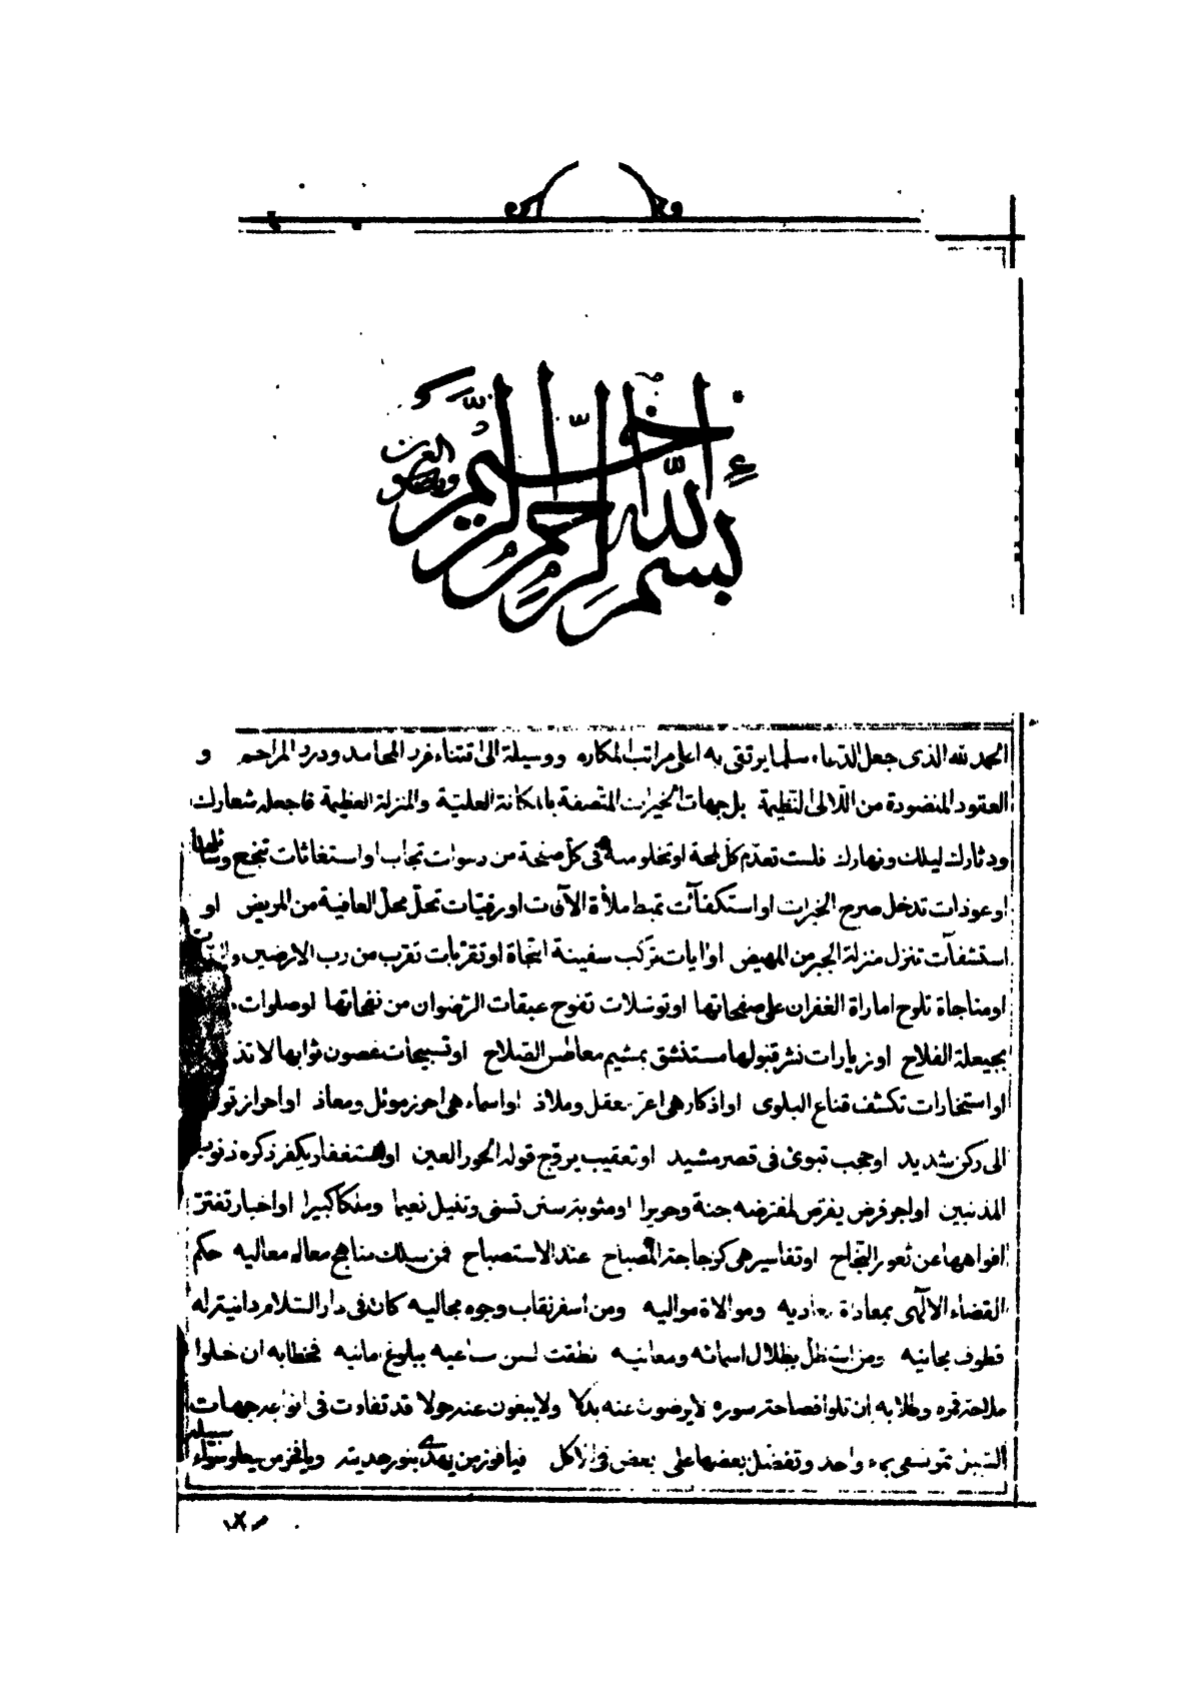 بسم الله الرحمن الرحيم
الحمد لله الذى جعل الدعاء سلما يرتقى به اعلى مراتب المكاره ووسيلة الى اقتناء غرد المحامد ودرد المراحم و
العقود المنضودة من اللآلى النظيمة بل جهات الخيرات المتصفة بالمكانة العلية والمنزلة العظيمة فاجعله شعارك
ودثارك ليلك ونهارك فلست تعدم كل لمحة او تخلو منه فى كل صفحة من دعوات تجاب او استغاثات تنجح وسائلها
او عوذات تدخل صرح الخيرات او استكفاآت تميط ملأة الآفات او رقيات تحل محل العافية من المريض او
استشفاآت تنزل منزلة الجبر من المهيض او ايات تركب سفينة النجاة او تقربات تقرب من رب الارضين و
او مناجاة تلوح اماراة الغفران على صفحاتها او توسلات تفوح عبقات الرضوان من نفحاتها او صلوات
بحيعلة الفلاح او زيارات نشر قبولها مستنشق بمشيم معاطس الصلاح او تسبيحات غصون ثوابها لا تذ
او استخارات تكشف قناع البلوى او اذكار هى اعز معقل وملاذ او اسماء هى احرز موئل ومعاذ او احراز تو
الى ركن شديد او حجب تبوئ فى قصر مشيد او تعقيب يزوج قوله الحور العين او استغفار يكفر ذكره ذنوب
المذنبين او اجر فرض يفرض لمفترضه جنة وحريرا او مثوبة سنن تسنى وتنيل نعيما وملكا كبيرا او اخبار تفتر
افواهها عن ثغور النجاح او تفاسير هى كزجاجة المصباح عند الاستصباح فمن سلك مناهج معاله معاليه حكم
القضاء الالهى بمعاداة معاديه وموالاة مواليه ومن اسفر نقاب وجوه مجاليه كان فى دار السلام دانية له
قطوف مجانيه ومن استظل بظلال اسمائه ومعانيه نطقت لسن مساعيه ببلوغ امانيه فخطابه ان خلوا
ملاحة قمره وطلابه ان تلوا فصاحة سوره لا يرضون عنه بدلا ولا يبغون عنه حولا قد تفاوت فى انواعه جهات
التبيان تسقى بماء واحد وتفضل بعضها على بعض فى الاكل فيا فوز من يهتدى بنور حديثه ويا فخر من يعلو سواء سبيله